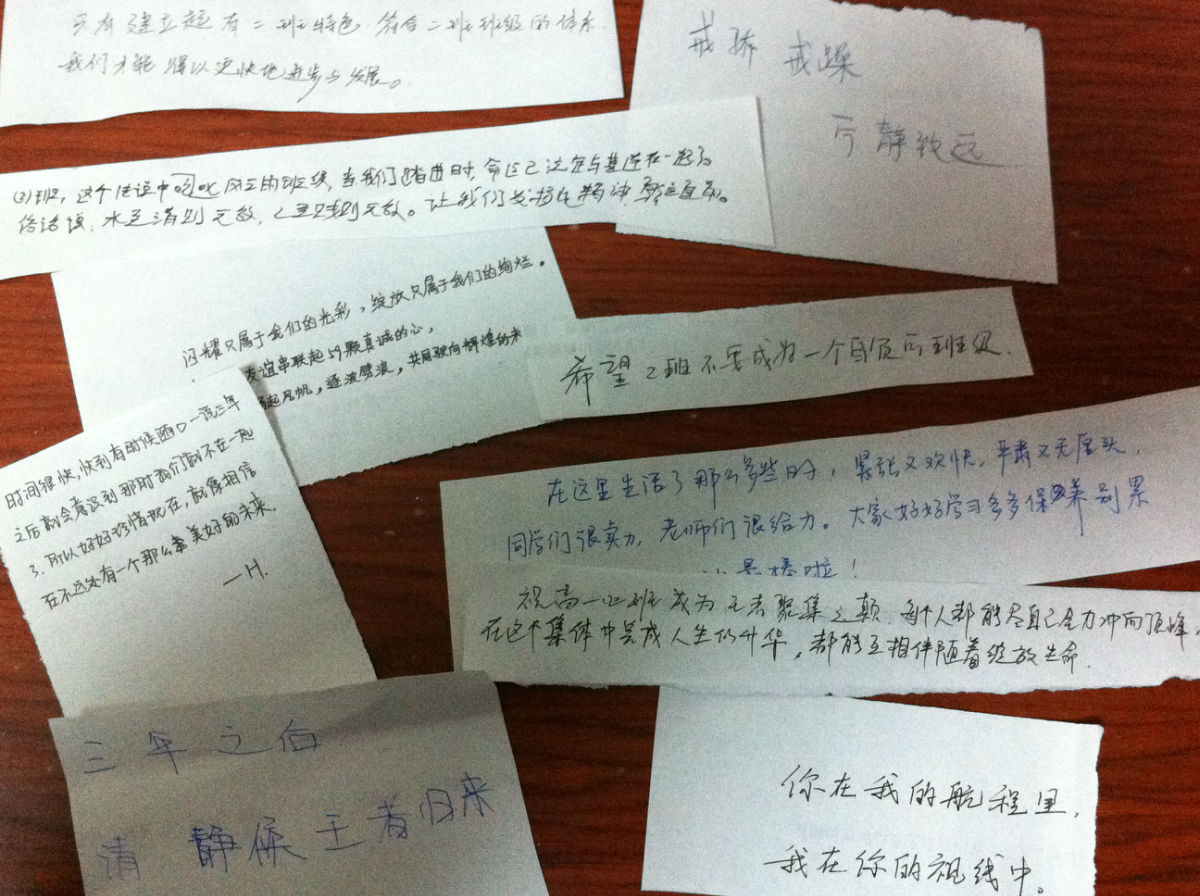 只有建立起有二班特色.符合二班班级的体系
我们才能得以更快地进步与发展。
戒骄 戒躁
宁静致远
(2)班,这个传说中叱咤风云的班级,当我们踏进时,命运已注定与其连在一起了。
俗话说,水至清则无敌,人至贱则无敌。让我们发扬精神,勇往直前。
闪耀只属于我们的光彩,绽放只属于我们的绚烂。
友谊串联起59颗真诚的心,
起风帆,逐波劈浪,共同驶向辉煌的未
希望2班不要成为一个自负的班级.
时间很快,快到有时候随口一说三年
之后就会意识到那时我们就不在一起
了.所以好好珍惜现在,就像相信
在不远处有一个那么幸美好的未来.
—H.
在这里生活了那么多些日子,紧张又欢快,严肃又无厘头,
同学们很卖力,老师们很给力。大家好好学习多多保养别累
最棒啦!
祝高一(2)班成为王者聚集之巅.每个人都能尽自己全力冲向顶峰.
在这个集体中完成人生的升华,都能互相伴随着绽放生命.
三年之后
请静候王者归来
你在我的航程里,
我在你的视线中。